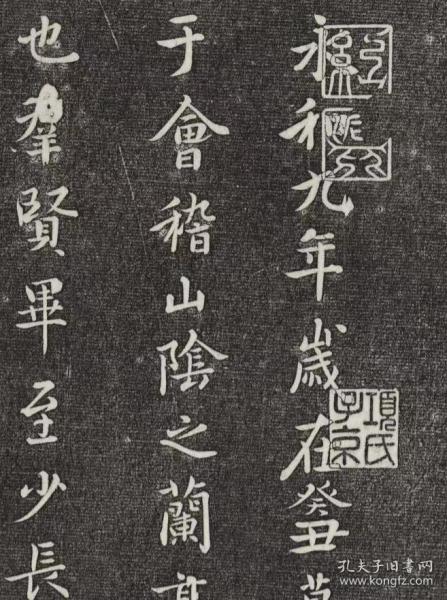 永和九年歲在癸丑暮
于會稽山陰之蘭亭
也羣賢畢至少長
項氏子京
孔夫子旧书网
www.kongfz.com